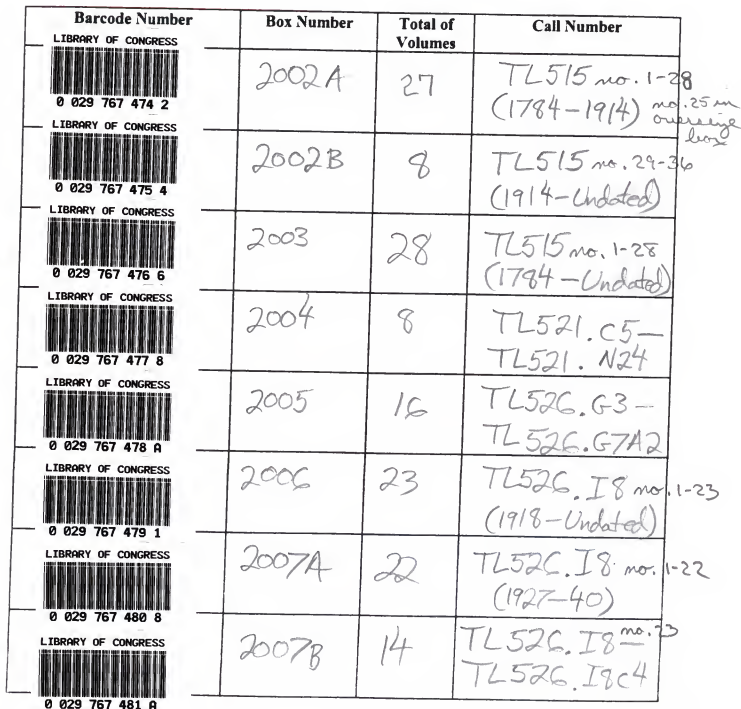 Barcode Number Box Number Total of Volumes Call Number
LIBRARY OF CONGRESS
0 029 767 474 2
2002A 27 TL515 no. 1-28
(1784-1914) no. 25 in oversize box
LIBRARY OF CONGRESS
0 029 767 475 4
2002B 8 TL515 no. 29-36
(1914-Undated)
LIBRARY OF CONGRESS
0 029 767 476 6
2003 28 TL515 no. 1-28
(1784-Undated)
LIBRARY OF CONGRESS
0 029 767 477 8
2004 8 TL521.C5—
TL521.N24
LIBRARY OF CONGRESS
0 029 767 478 A
2005 16 TL526.G3—
TL526.G7A2
LIBRARY OF CONGRESS
0 029 767 479 1
2006 23 TL526.I8 no. 1-23
(1918-Undated)
LIBRARY OF CONGRESS
0 029 767 480 8
2007A 22 TL526.I8 no. 1-22
(1927-40)
LIBRARY OF CONGRESS
0 029 767 481 A
2007B 14 TL526.I8 no. 23—
TL526.I8c4